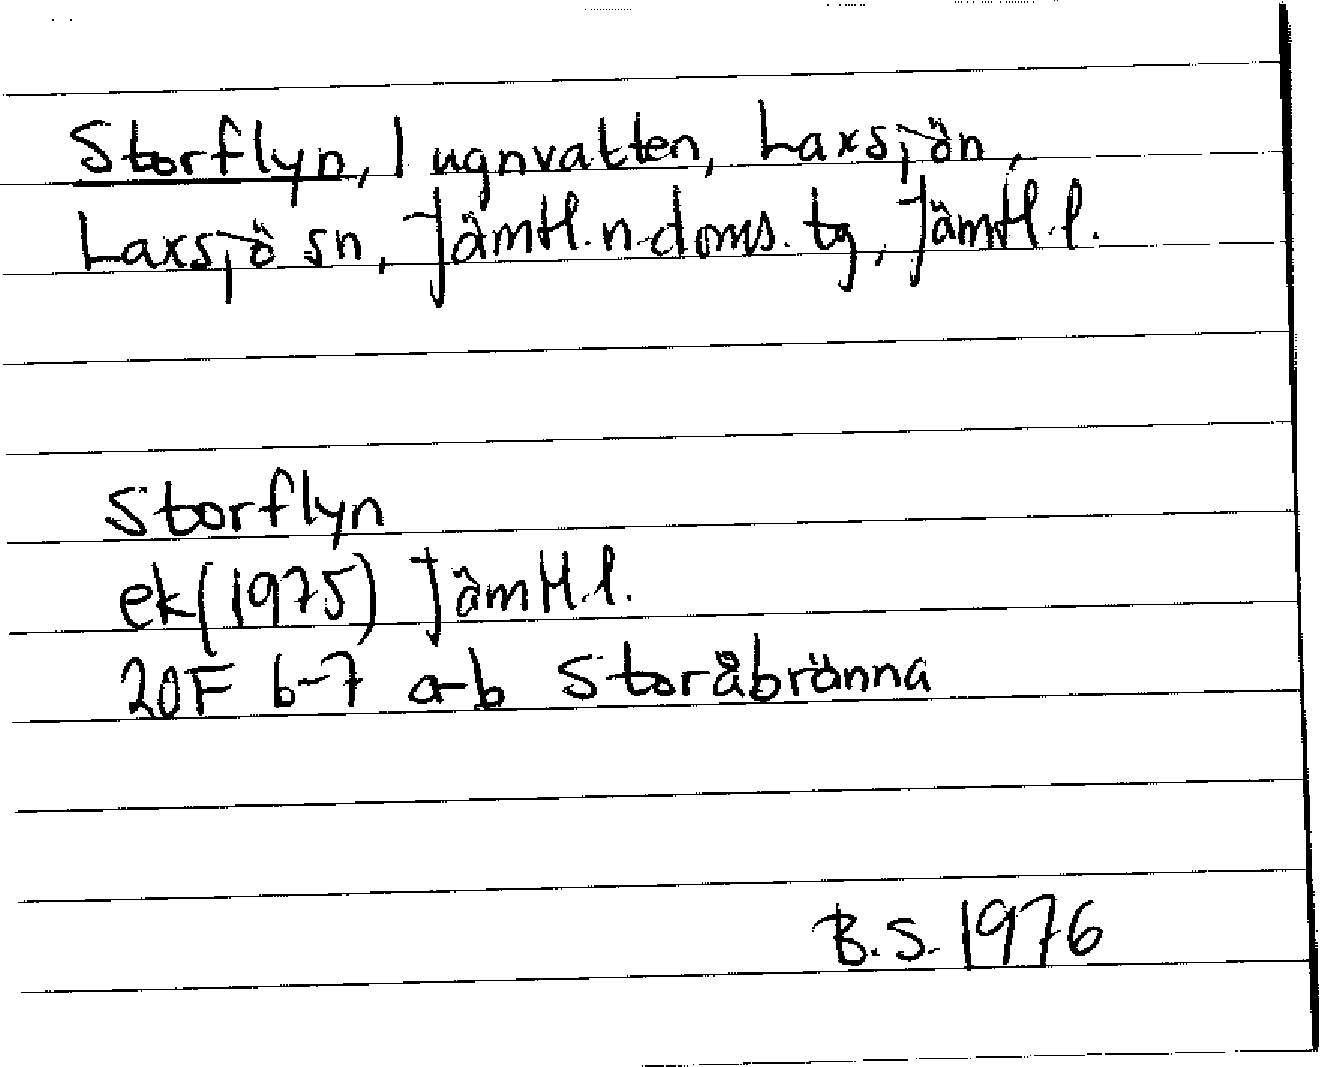 Storflyn, lugnvatten, Laxsjön,
Laxsjö sn, Jämtl.n.doms.tg, Jämtl.l.
Storflyn
ek(1975) Jämtl.l.
20F 6-7 a-b Storåbränna
B.S. 1976